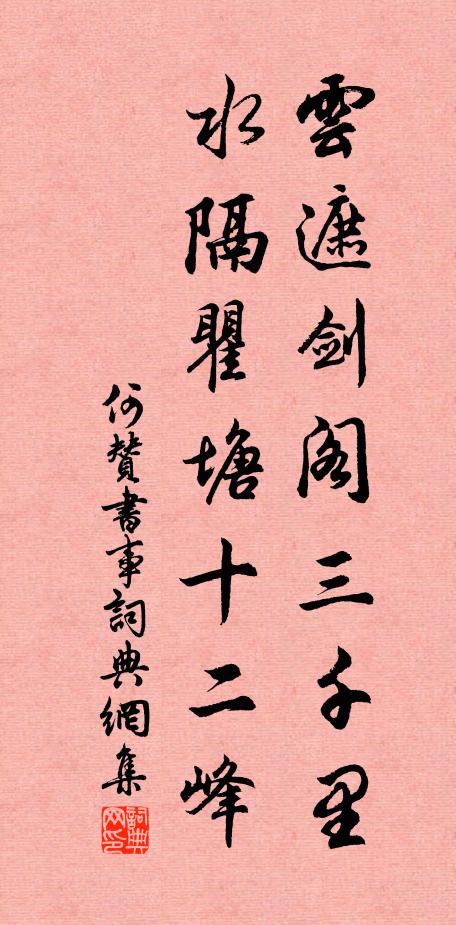 雲遮劍阁三千里
水隔瞿塘十二峰
何贊書事詞典網集
詞典网印